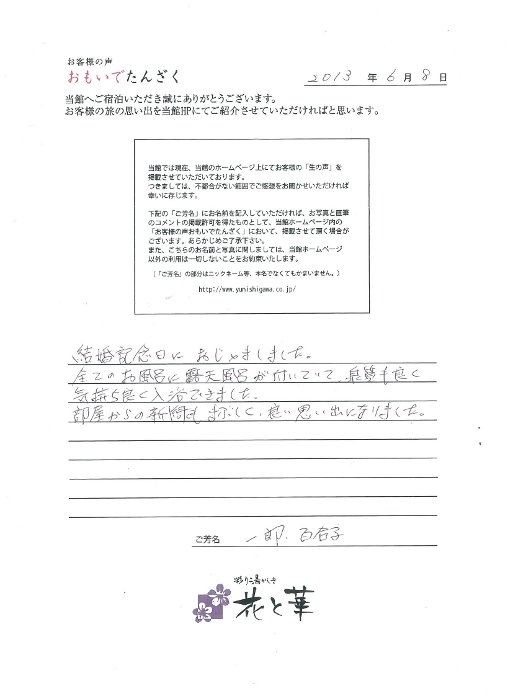 お客様の声
おもいでたんざく
2013 年 6 月 8 日
当館へご宿泊いただき誠にありがとうございます。
お客様の旅の思い出を当館HPにてご紹介させていただければと思います。
当館では現在、当館のホームページ上にてお客様の「生の声」を
掲載させていただいております。
つきましては、不都合がない範囲でご感想をお聞かせいただければ
幸いに存じます。
下記の「ご芳名」にお名前を記入していただければ、お写真と直筆
のコメントの掲載許可を得たものとして、当館ホームページ内の
「お客様の声おもいでたんざく」において、掲載させて頂く場合が
ございます。あらかじめご了承下さい。
また、こちらのお名前と写真に関しましては、当館ホームページ
以外の利用は一切しないことをお約束いたします。
(「ご芳名」の部分はニックネーム等、本名でなくてもかまいません。)
http://www.yunishigawa.co.jp/
結婚記念日に おじゃましました。
全てのお風呂に露天風呂が付いていて、泉質も良く
気持ち良く入浴できました。
部屋からの新緑も まぶしく、良い思い出になりました。
ご芳名 一郎、百合子
彩り湯かしき
花と華